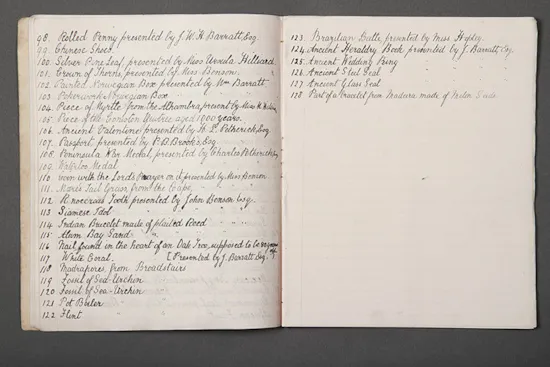 98. Rolled Penny presented by J. W. H. Barratt, Esq.
99. Chinese Shoes
100. Silver Pine Leaf, presented by Miss Ursula Hilliard.
101. Crown of Thorns, presented by Miss Bensons.
102. Painted Norwegian Box presented by Wm Barratt
103. Pokerwork Norwegian Box " "
104. Piece of Myrtle from the Alhambra, present by Miss H.
105. Piece of the Yew aged 1000 years.
106. Ancient Valentine presented by H. L. Petherick, Esq
107. Passport, presented by P. D. Brooks, Esq.
108. Peninsula War Medal, presented by Charles Petherick
109. Waterloo Medal
110. with the Lord's Prayer on it presented by Miss Benson
111. Mare's Tail Grass, from the Cape
112. Rinoceros Tooth presented by John Benson Esq.
113 Siamese Idol
114 Indian Bracelet made of plaited Reed
115 Alum Bay Sand
116 Nail found in the heart of an Oak Tree, supposed to be
117 White Coral. [Presented by J. Barratt Esq.
118 Madrapores from Broadstairs
119 Fossil of Sea-Urchin
120 Fossil of Sea-Urchin
121 Pot Boiler
122 Flint
123. Brazilian Beetle, presented by Miss
124. Ancient Heraldry Book presented by J. Barratt, Esq.
125. Ancient Wedding Ring
126. Ancient Steel Seal
127 Ancient Glass Seal
128 Part of a bracelet from Madeira made of Melon Seeds